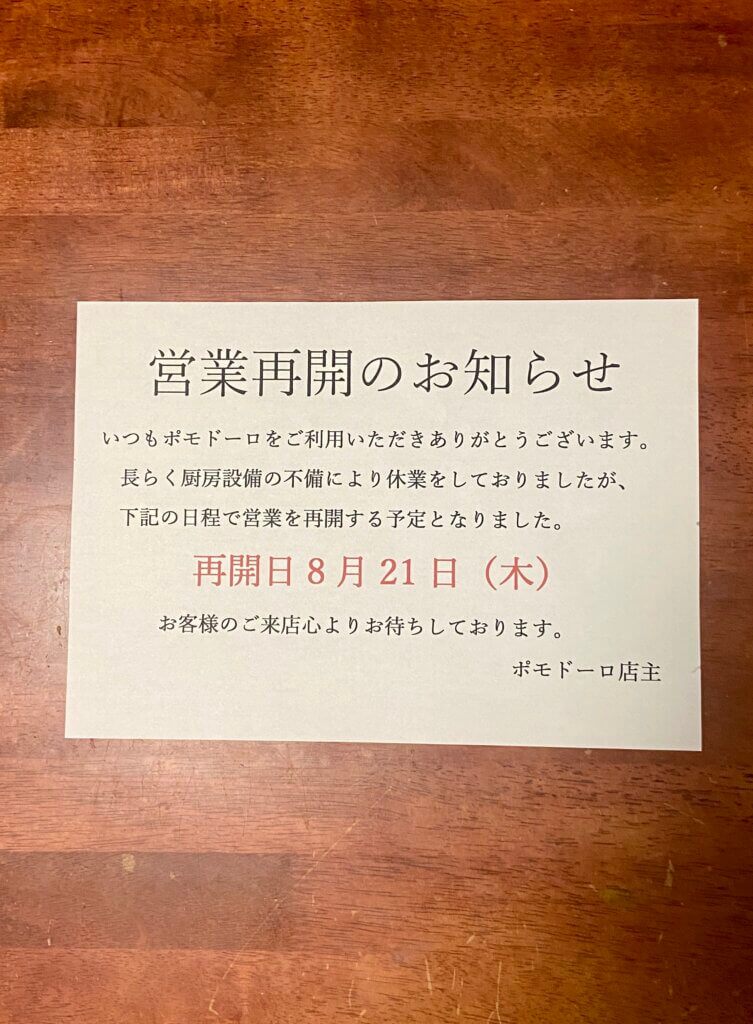 営業再開のお知らせ
いつもポモドーロをご利用いただきありがとうございます。
長らく厨房設備の不備により休業をしておりましたが、
下記の日程で営業を再開する予定となりました。
再開日 8 月 21 日（木）
お客様のご来店心よりお待ちしております。
ポモドーロ店主